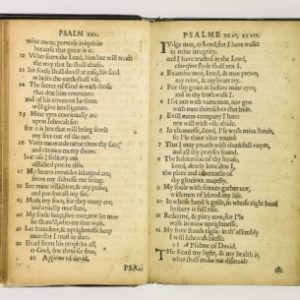 PSALM xxv.
mine owne perverse iniquitie
because that great it is.
12 Who fears the Lord, him hee will teach
the way that he shall chuse.
13 his soule shall dwell at ease, his seed
as heirs the earth shall
14 The secret of God is with those
that doe him reverence
and of his covenant he them
will give intelligence.
15 Mine eyes continually are
upon Jehovah set
for it is hee that will bring forth
my feet out of the net.
16 Unto me-ward turne thou thy face,
and on mee mercy show:
I solitary am
afflicted poore also.
17 My hearts troubles inlarged are,
from my distresse me bring.
18 See mine affliction, & my paine,
and pardon all my sin.
19 Mark my foes, for they many are,
and cruelly mee hate.
20 My soule keep, free mee; nor let mee
be asham'd, who on thee waite.
21 Let soundnes, & uprightnesse keep
mee: for I trust in thee.
22 Israel from his troubles all,
O God, doe thou set free.
26 A psalme of david.
PSALME xxvi, xxvii.
Iudge mee, o Lord, for I have walkt
in mine integrity:
and I have trusted in the Lord,
therefore slyde shall not I.
2 Examine mee, Lord, & mee prove;
my reins, & my heart try.
3 For thy grace is before mine eyes,
and in thy truth walk I.
4 I sat not with vaine men, nor goe
with men themselves that hide.
5 Evill mens company I hate:
nor will with vile abide.
6 In cleannesse, Lord, I'le wash mine hands,
so I'le thine altar round
7 That I may preach with thankfull voyce,
and all thy prayses sound.
8 The habitation of thy house,
Lord, dearly love doe I,
the place and tabernacle
of thy glorious majesty.
9 My soule with sinners gather not,
with men of blood my life
10 In whose hand's guile, in whose right hand
bribery is
11 Redeeme, & pitty mee, for I'le
walk in mine integrity.
12 My foot stands right: in th' assembly
I will Jehovah blesse.
27 A Psalme of David.
The Lord my light, & my health is,
what shall make me dismaid?